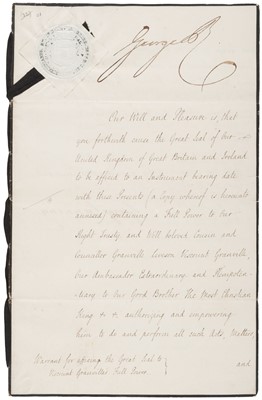 George R
Our Will and Pleasure is, that
you forthwith cause the Great Seal of Our
United Kingdom of Great Britain and Ireland
to be affixed to an Instrument bearing date
with these Presents (a Copy whereof is hereunto
annexed) containing a Full Power to Our
Right Trusty and Well beloved Cousin and
Councillor Granville Leveson Viscount Granville,
Our Ambassador Extraordinary and Plenipoten-
tiary to Our Good Brother The Most Christian
King &c &c authorizing and empowering
him to do and perform all such Acts, Matters,
and
Warrant for affixing the Great Seal to
Viscount Granville's Full Power